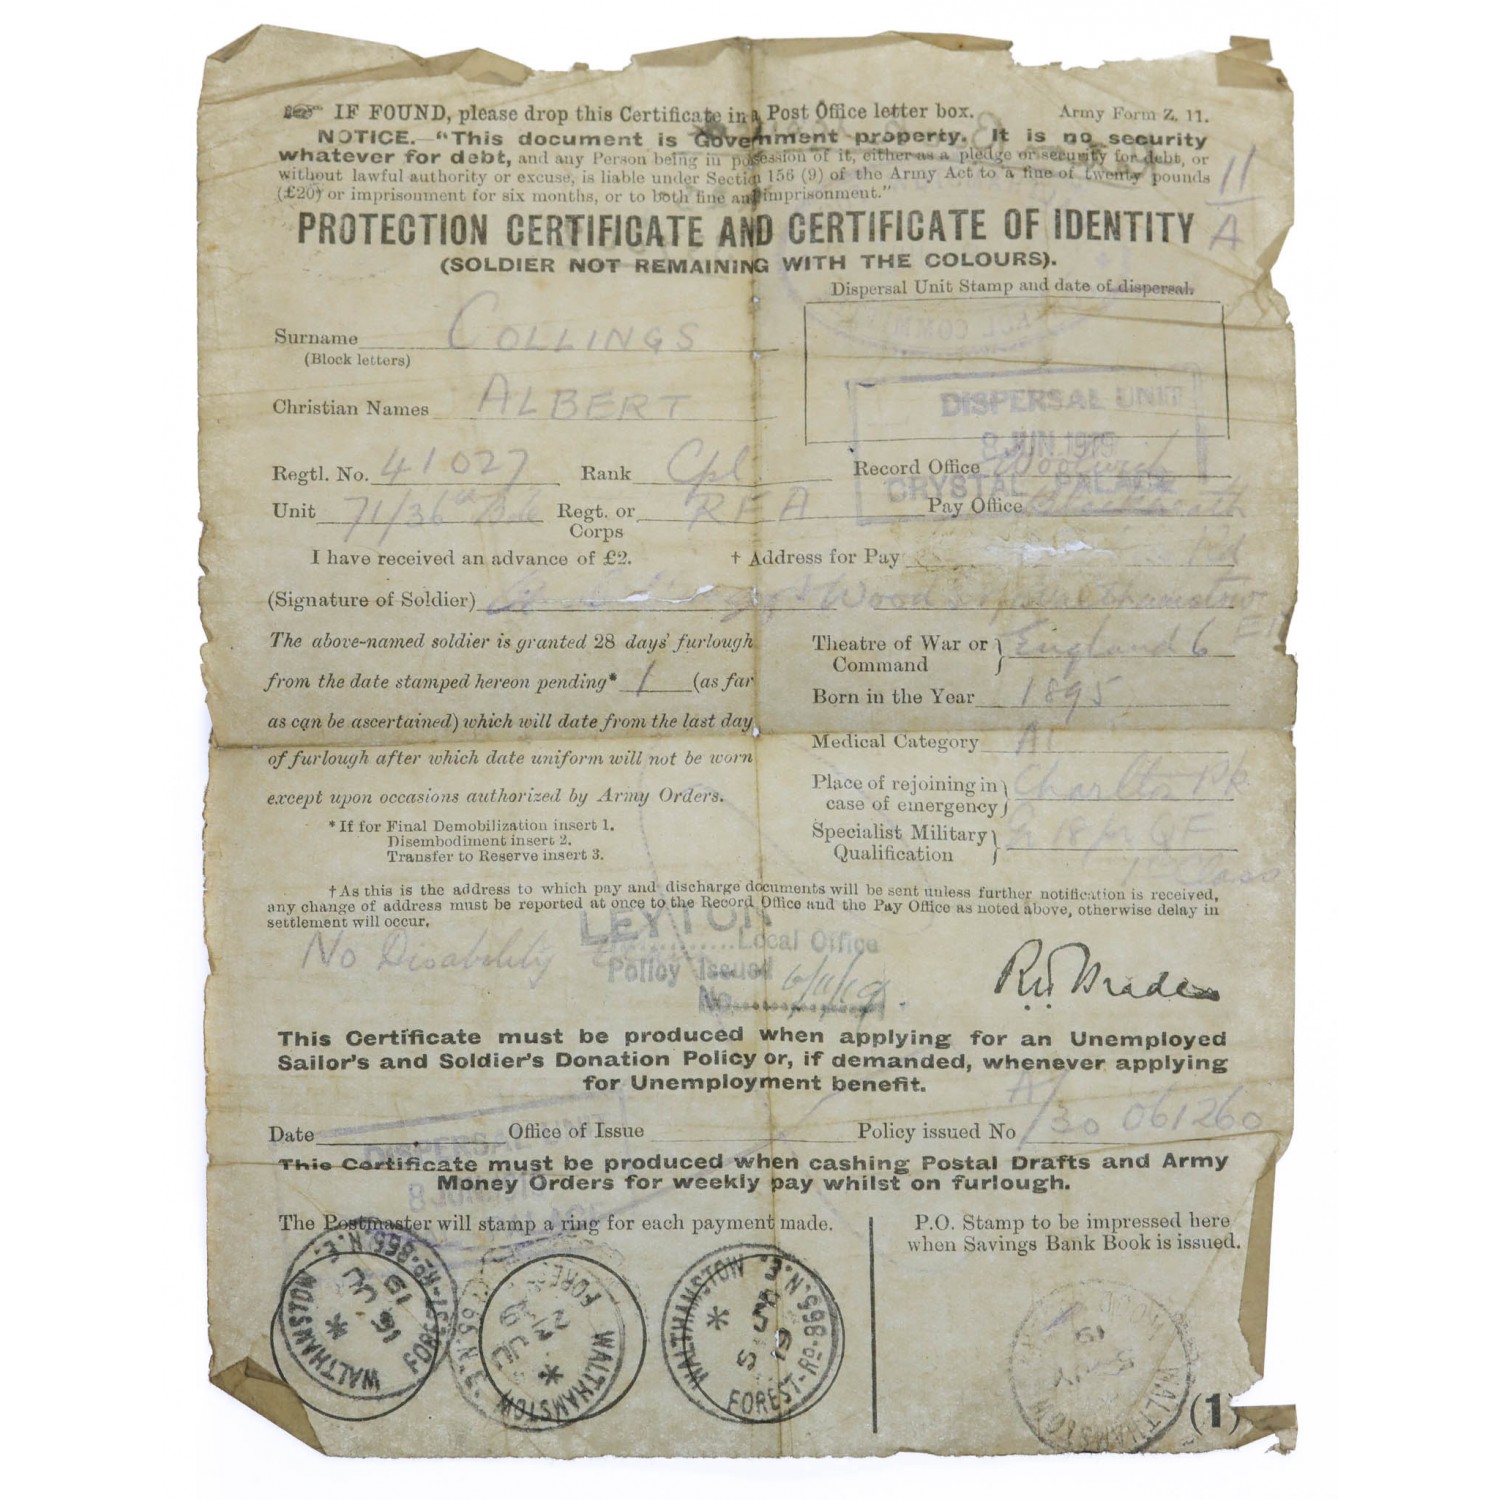 IF FOUND, please drop this Certificate in a Post Office letter box. Army Form Z. 11.
NOTICE.—"This document is Government property. It is no security
whatever for debt, and any Person being in possession of it, either as a pledge or security for debt, or
without lawful authority or excuse, is liable under Section 156 (9) of the Army Act to a fine of twenty pounds
(£20) or imprisonment for six months, or to both fine and imprisonment."
11
A
PROTECTION CERTIFICATE AND CERTIFICATE OF IDENTITY
(SOLDIER NOT REMAINING WITH THE COLOURS).
Dispersal Unit Stamp and date of dispersal.
Surname COLLINGS
(Block letters)
Christian Names ALBERT
DISPERSAL UNIT
8 JUN 1919
CRYSTAL PALACE
Regtl. No. 41027 Rank Cpl Record Office Woolwich
Unit 71/36 Regt. or RFA Pay Office Blackheath
Corps
I have received an advance of £2. † Address for Pay Rd
(Signature of Soldier) Wood St Walthamstow
The above-named soldier is granted 28 days' furlough
from the date stamped hereon pending* 1 (as far
as can be ascertained) which will date from the last day
of furlough after which date uniform will not be worn
except upon occasions authorized by Army Orders.
* If for Final Demobilization insert 1.
Disembodiment insert 2.
Transfer to Reserve insert 3.
Theatre of War or England 6
Command
Born in the Year 1895
Medical Category A1
Place of rejoining in Charlton Pk
case of emergency
Specialist Military 18/pr QF
Qualification 1 Class
† As this is the address to which pay and discharge documents will be sent unless further notification is received,
any change of address must be reported at once to the Record Office and the Pay Office as noted above, otherwise delay in
settlement will occur.
No Disability
LEYTON
Local Office
Policy Issued 6/11/19
No.
This Certificate must be produced when applying for an Unemployed
Sailor's and Soldier's Donation Policy or, if demanded, whenever applying
for Unemployment benefit.
Date Office of Issue Policy issued No A/30 061260
DISPERSAL UNIT
This Certificate must be produced when cashing Postal Drafts and Army
Money Orders for weekly pay whilst on furlough.
The Postmaster will stamp a ring for each payment made.
P.O. Stamp to be impressed here
when Savings Bank Book is issued.
WALTHAMSTOW FOREST-RD. 865 N.E.
16 JU 19
WALTHAMSTOW FORE
WALTHAMSTOW FOREST-RD. 865 N.E.
19
WALTHAMSTOW
19
(1)